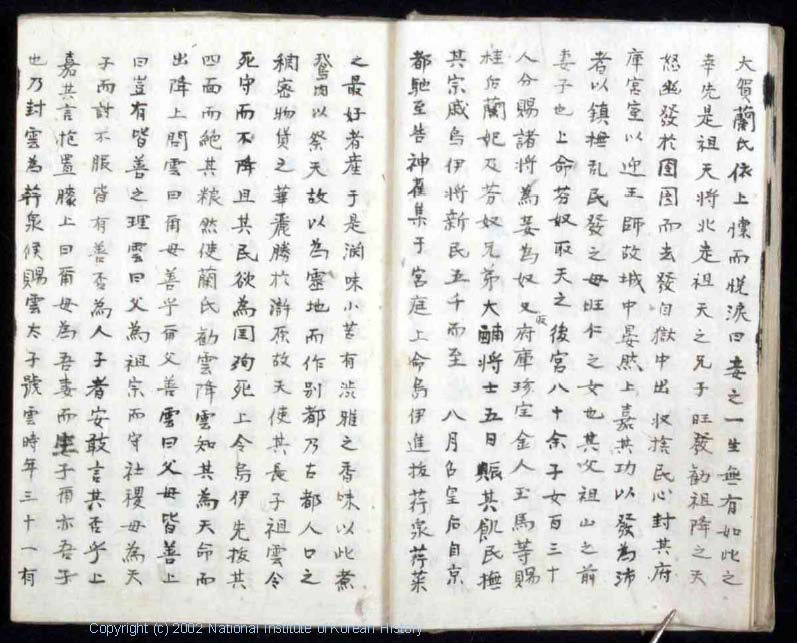 大賀蘭氏依上懷而悅淚曰妾之一生無有如此之
幸先是祖天將北走祖天之兄子旺發勸祖降之天
怒幽發於囹圄而去發自獄中出收捨民心封其府
庫宮室以迎王師故城中晏然上嘉其功以發為沛
者以鎮撫乱民發之母旺仁之女也其父祖山之前
妻子也上命芬奴取天之後宮八十余子女百三十
人分賜諸將為妾為奴又取府庫珍宝金人玉馬等賜
桂后蘭妃及芬奴兄弟大酺將士五日賑其飢民撫
其宗戚烏伊將新民五千而至 八月召皇后自京
都馳至告神雀集于宮庭上命烏伊進拔荇泉荇菜
之最好者産于是澗味小苦有渋雅之香味以此煮
鵞肉以祭天故以為靈地而作別都乃古都人口之
稠密物貨之華麗勝於滸原故天使其長子祖雲令
死守而不降且其民欲為国殉死上令烏伊先拔其
四面而絶其粮然使蘭氏勸雲降雲知其為天命而
出降上問雲曰爾母善乎爾父善雲曰父母皆善上
曰豈有皆善之理雲曰父為祖宗而守社稷母為天
子而討不服皆有善否為人子者安敢言其否乎上
嘉其言抱置膝上曰爾母為吾妻而生子爾亦吾子
也乃封雲為荇泉候賜雲太子號雲時年三十一有
Copyright (c) 2002 National Institute of Korean History